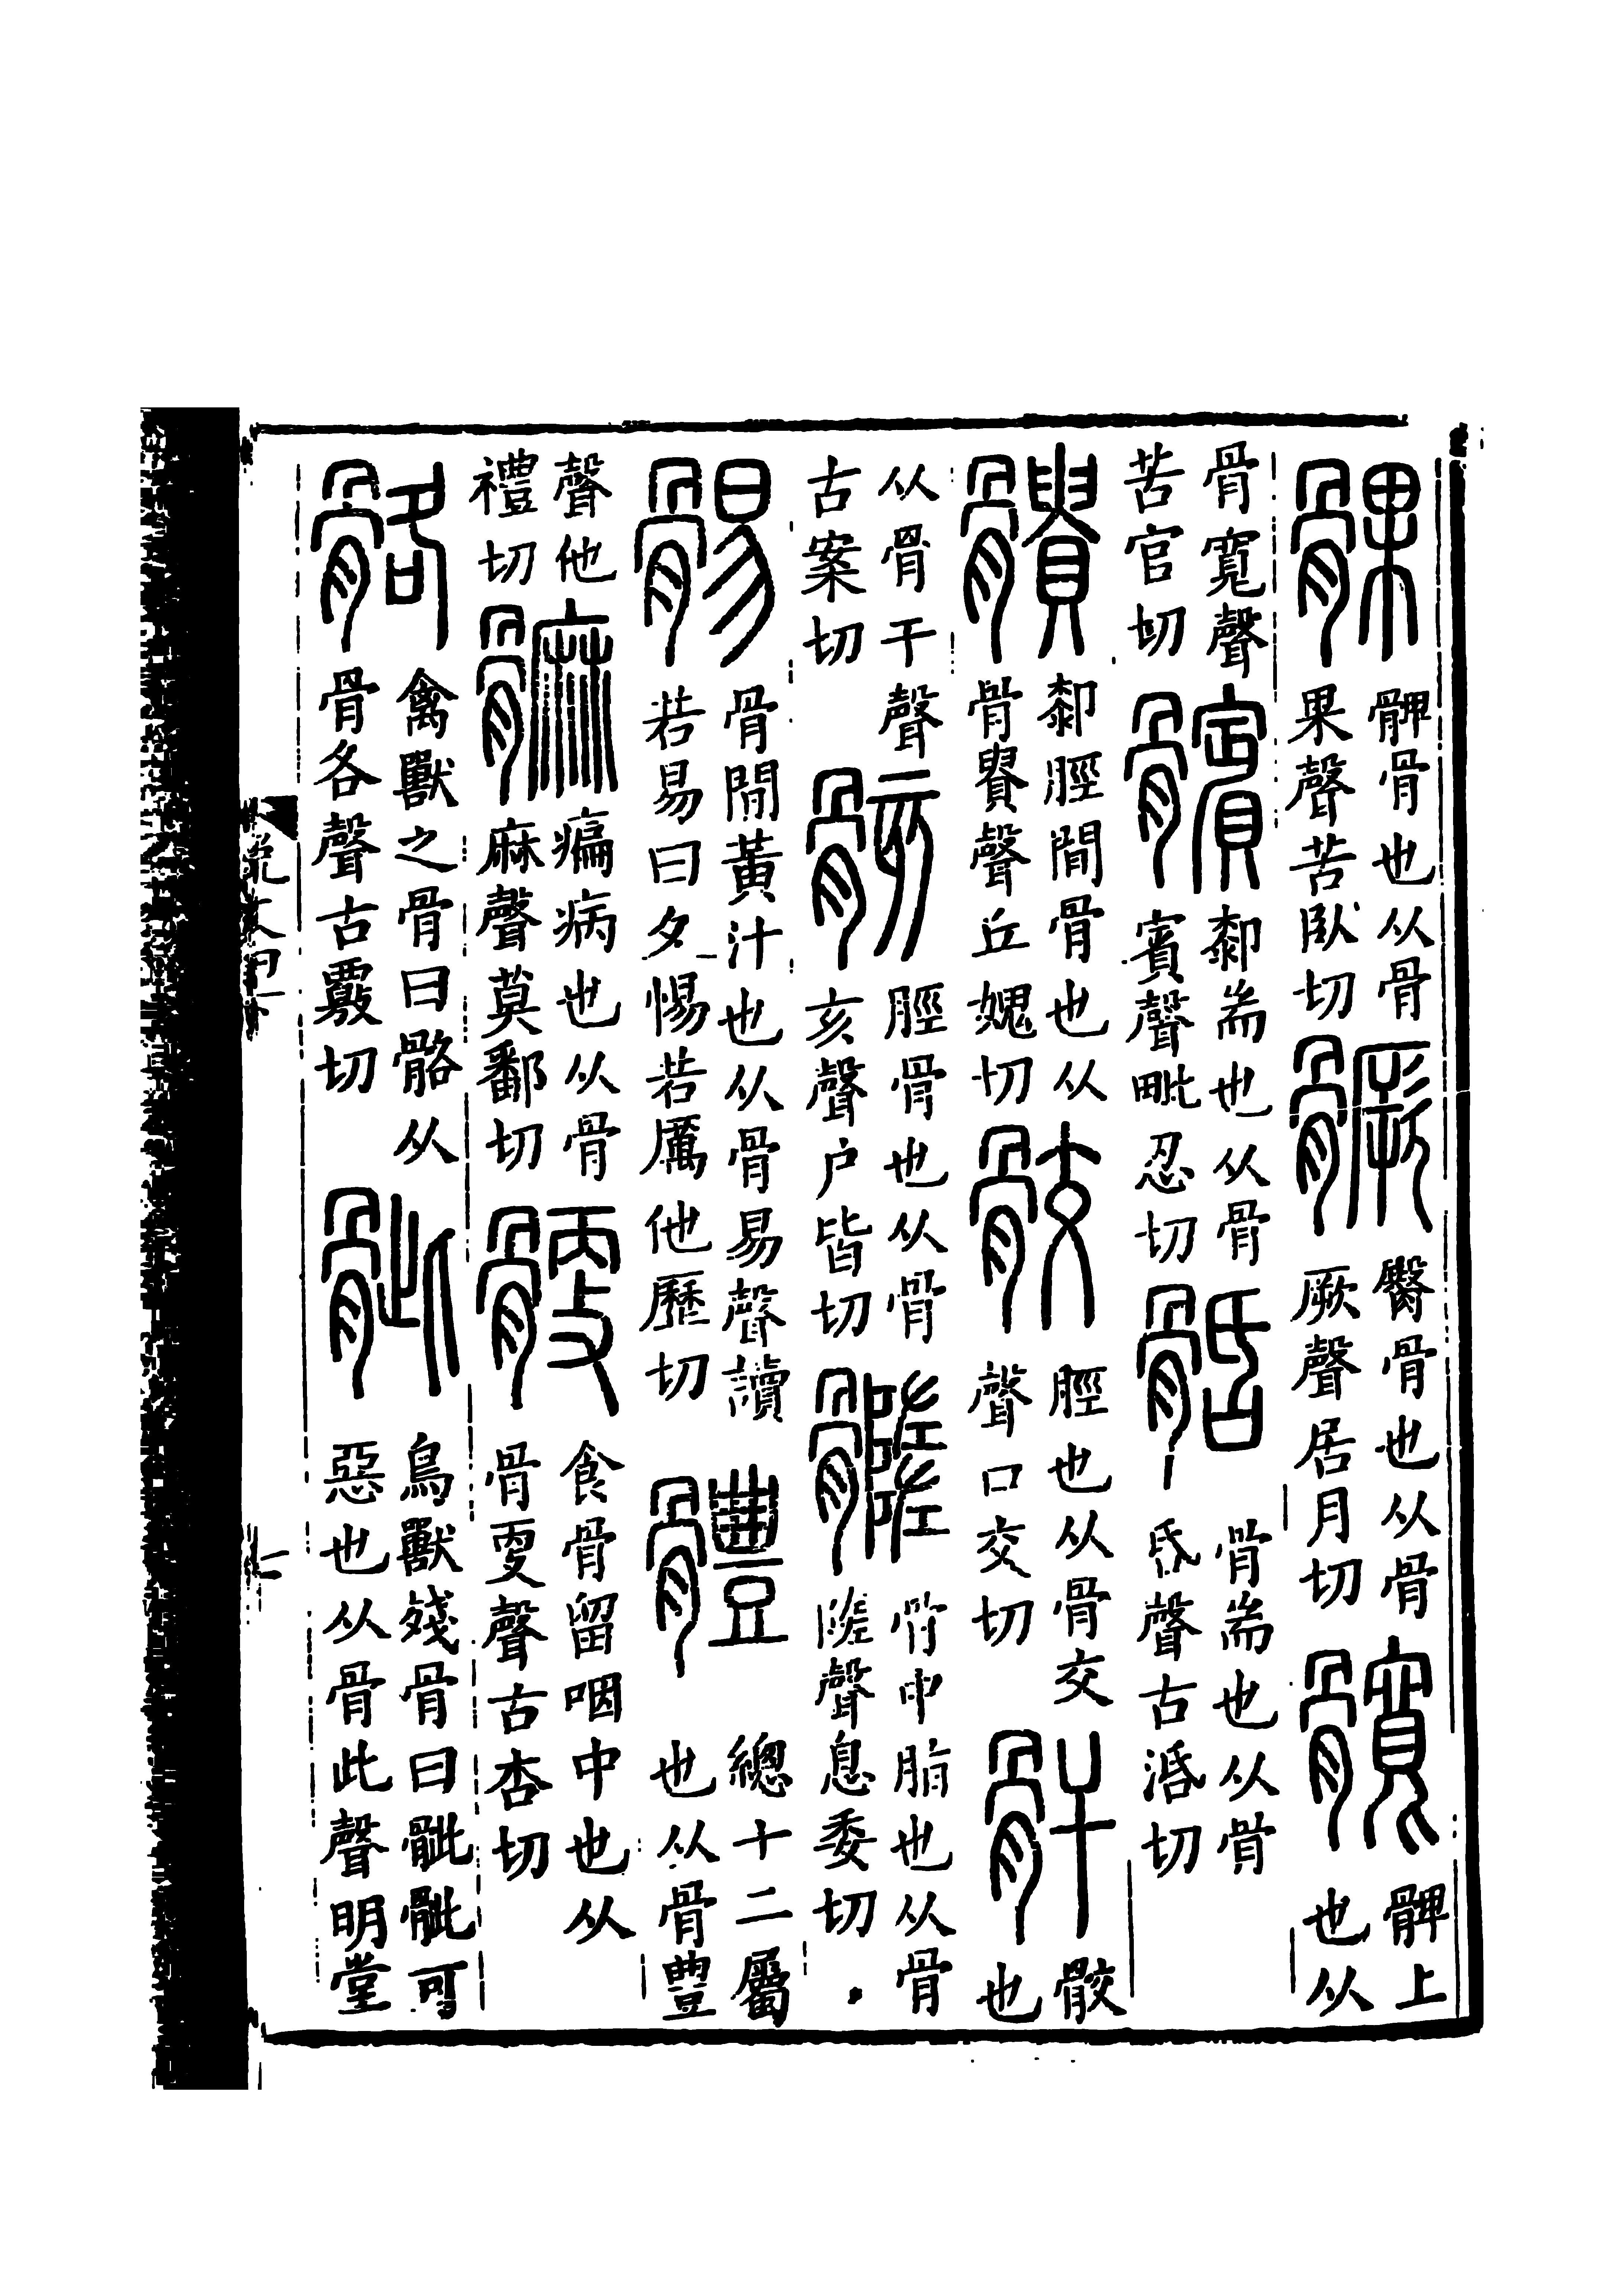 髁髀骨也从骨果聲苦臥切𩪗臀骨也从骨厥聲居月切髖髀上也从
骨寬聲苦官切髕厀耑也从骨賓聲毗忍切䯏骨耑也从骨昏聲古湉切
䯣厀脛閒骨也从骨貴聲丘媿切骹脛也从骨交聲口交切骭骹也
从骨干聲古案切骸脛骨也从骨亥聲戶皆切𩪦骨中脂也从骨隓聲息委切
𩩙骨閒黃汁也从骨易聲讀若易曰夕惕若厲他歷切體總十二屬也从骨豊
聲他禮切䯢㾫病也从骨麻聲莫鄱切骾食骨留咽中也从骨㪅聲古杏切
骼禽獸之骨曰骼从骨各聲古覈切骴鳥獸殘骨曰骴骴可惡也从骨此聲明堂
說文四下